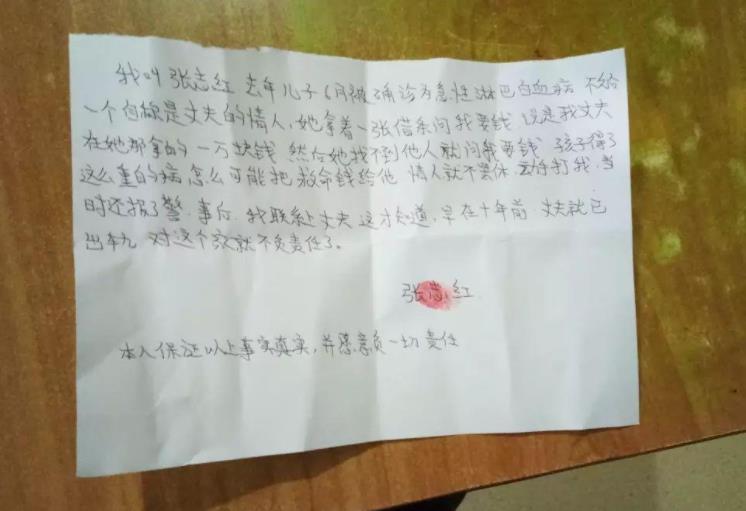 我叫张志红 去年儿子6月被确诊为急性淋巴白血病
一个自称是丈夫的情人,她拿着一张借条问我要钱 说是我丈夫
在她那拿的一万块钱 然后她找不到他人就问我要钱 孩子得了
这么重的病怎么可能把救命钱给他 情人就不罢休.动手打我.当
时还报了警.事后.我联系上丈夫 这才知道,早在十年前 丈夫就已
出轨 对这个家就不负责任了。
张志红
本人保证以上事实真实,并愿意负一切责任